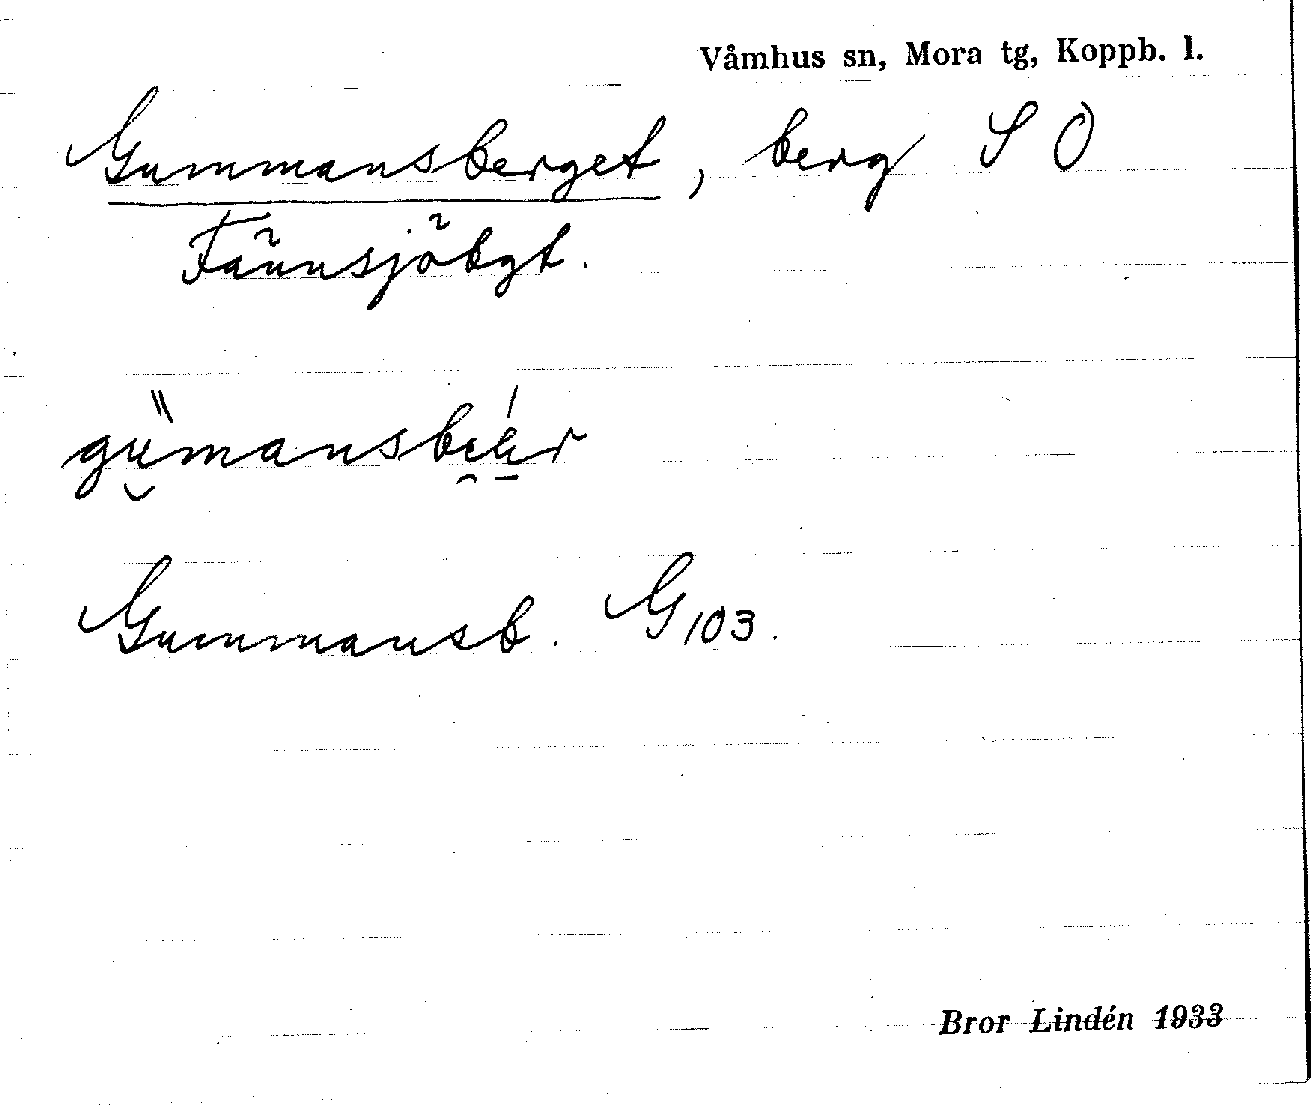 Våmhus sn, Mora tg, Koppb. l.
Gummansberget, berg S O
Fännsjöbgt.
gű̮mansbi̯é̠r
Gummansb. G 103.
Bror Lindén 1933